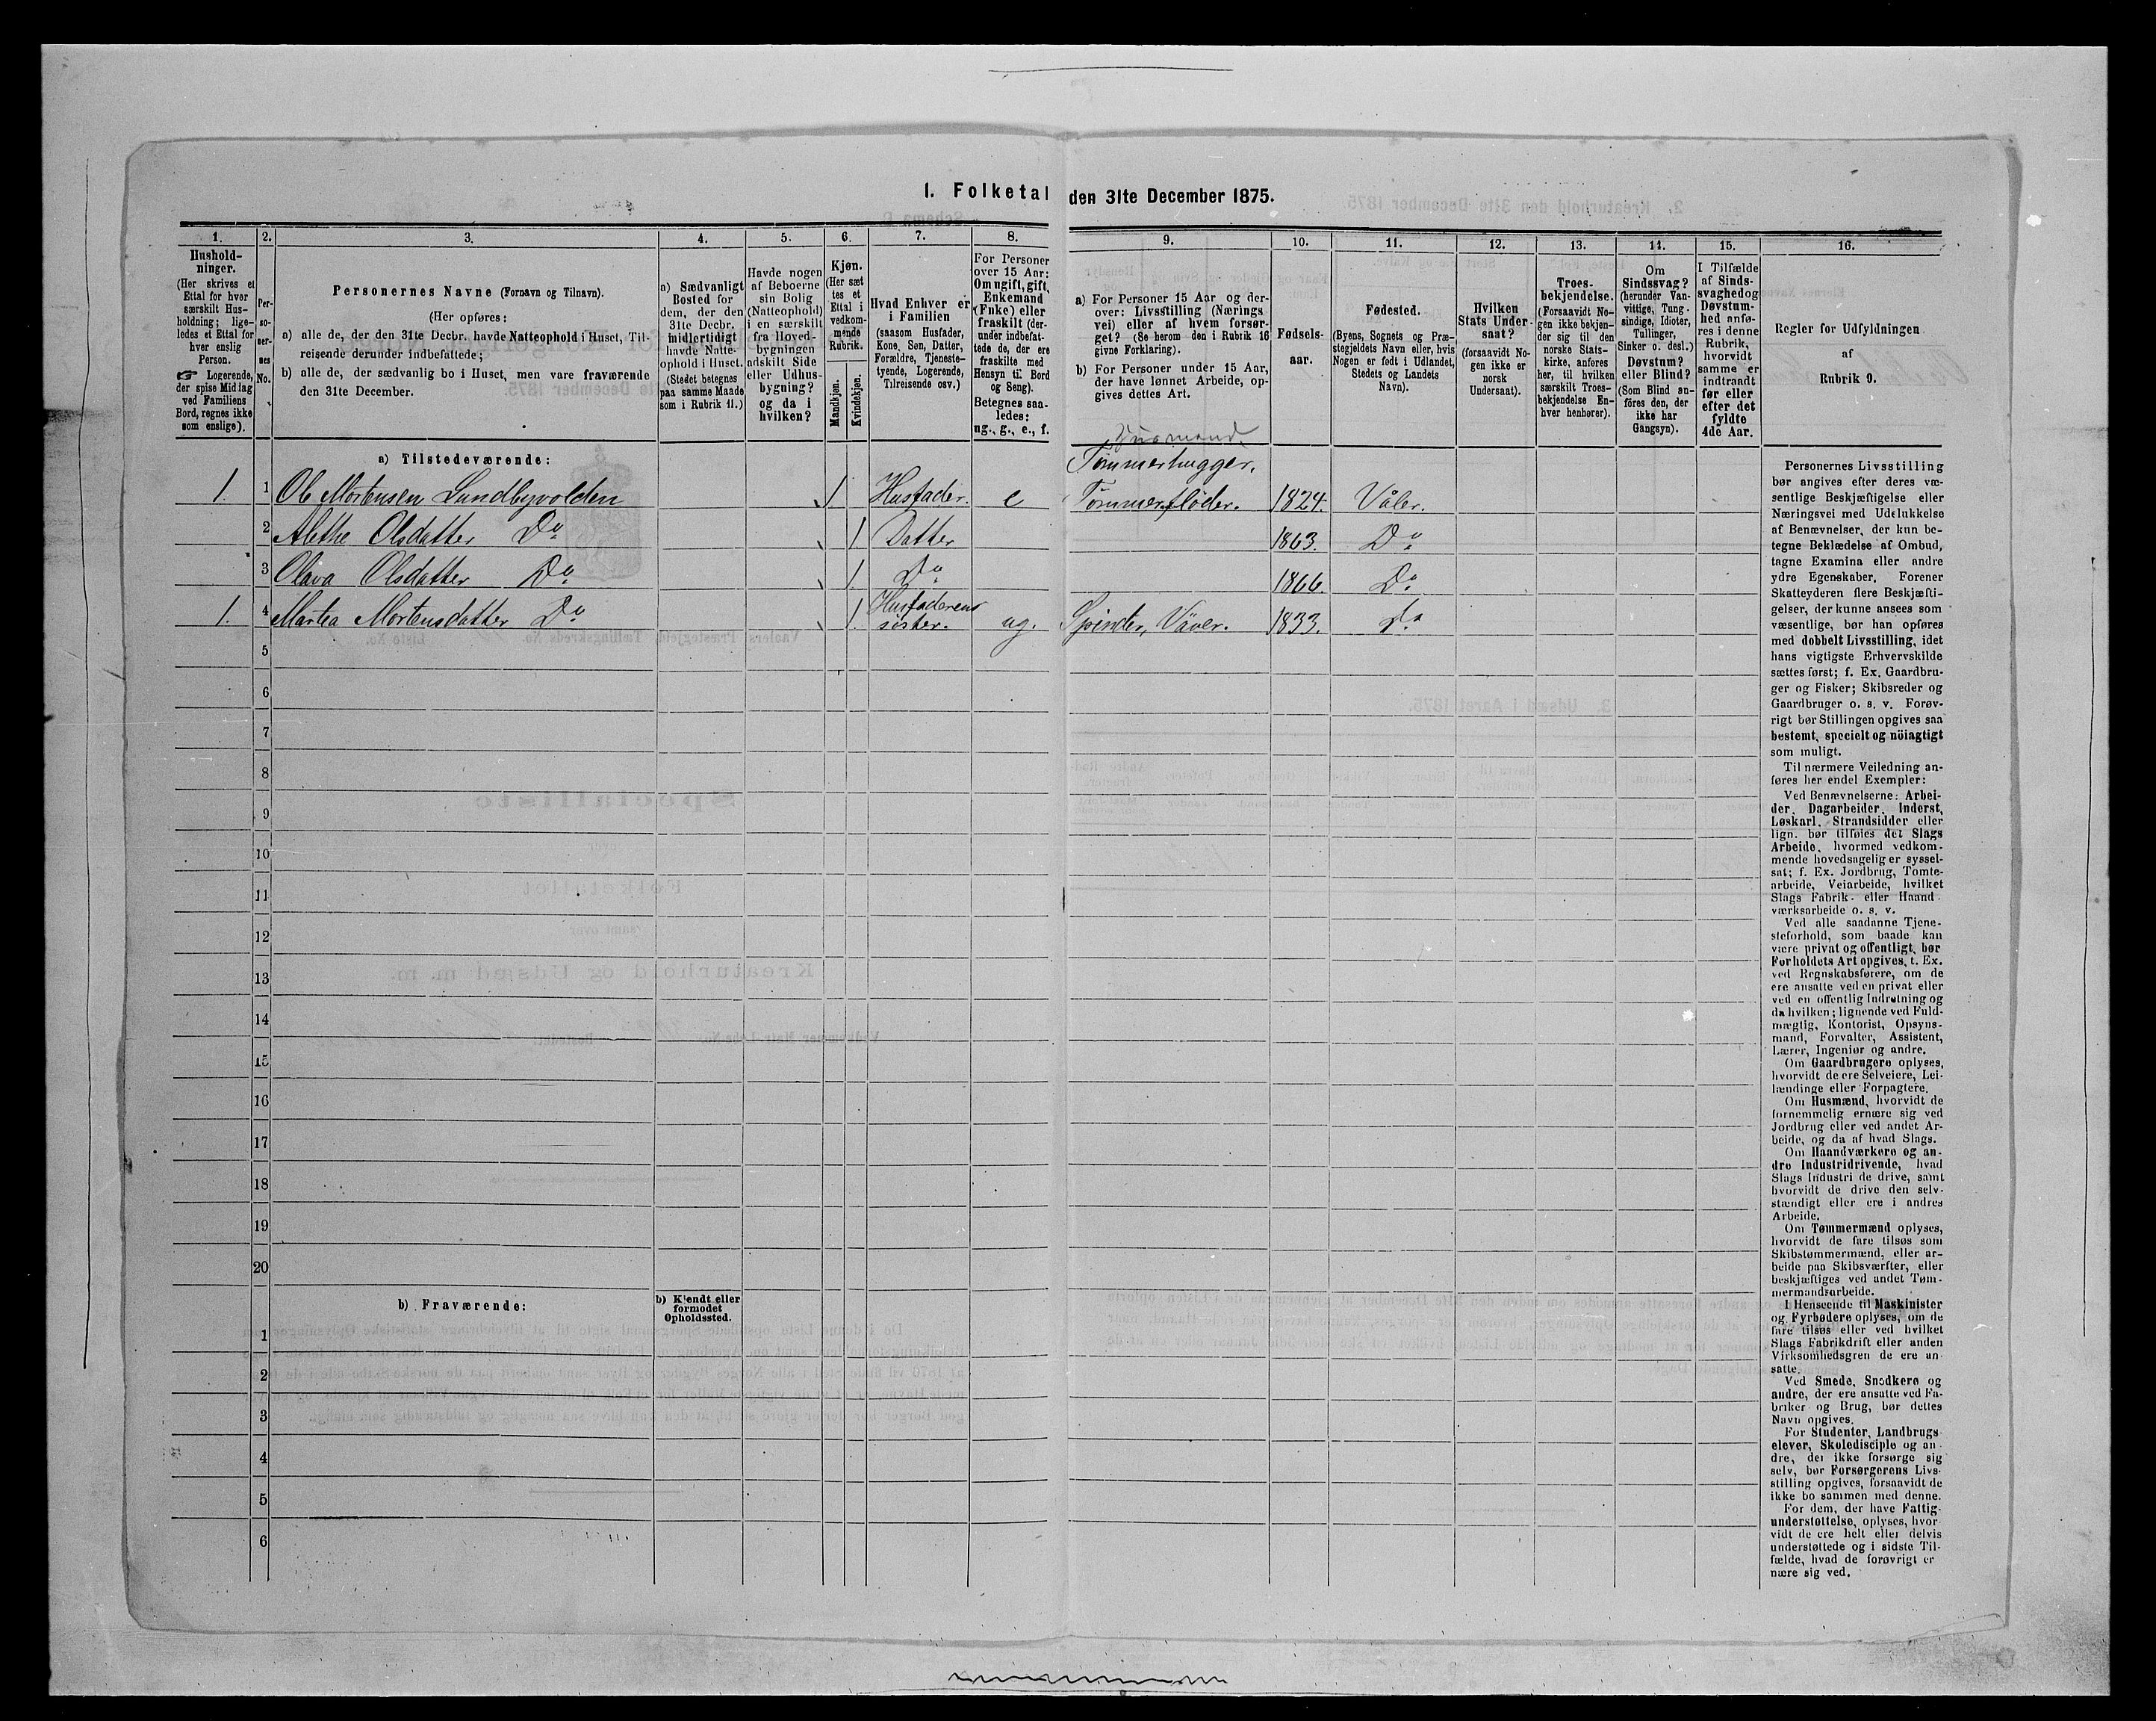 1. Folketal den 31te December 1875.
1. 2. 3. 4. 5. 6. 7. 8. 9. 10. 11. 12. 13. 14. 15. 16.
Hushold-
ninger.
(Her skrives et
Ettal for hver
særskilt Hus-
holdning; lige-
ledes et Ettal for
hver enslig
Person.
☞ Logerende,
der spise Middag
ved Familiens
Bord, regnes ikke
som enslige).
Per-
so-
ner-
nes
No.
Personernes Navne (Fornavn og Tilnavn).
(Her opføres:
a) alle de, der den 31te Decbr. havde Natteophold i Huset, Til-
reisende derunder indbefattede;
b) alle de, der sædvanlig bo i Huset, men vare fraværende
den 31te December.
a) Sædvanligt
Bosted for
dem, der den
31te Decbr.
midlertidigt
havde Natte-
ophold i Huset.
(Stedet betegnes
paa samme Maade
som i Rubrik 11.)
Havde nogen
af Beboerne
sin Bolig
(Natteophold)
i en særskilt
fra Hoved-
bygningen
adskilt Side
eller Udhus-
bygning?
og da i
hvilken?
Kjøn.
(Her sæt
tes et
Ettal i
vedkom-
mende
Rubrik.
Mandkjøn.
Kvindekjøn.
Hvad Enhver er
i Familien
(saasom Husfader,
Kone, Søn, Datter,
Forældre, Tjeneste-
tyende, Logerende,
Tilreisende osv.)
For Personer
over 15 Aar:
Om ugift, gift,
Enkemand
(Enke) eller
fraskilt (der-
under indbefat-
tede de, der ere
fraskilte med
Hensyn til Bord
og Seng).
Betegnes saa-
ledes:
ug., g., e., f.
a) For Personer 15 Aar og der-
over: Livsstilling (Nærings
vei) eller af hvem forsør-
get? (Se herom den i Rubrik 16
givne Forklaring).
b) For Personer under 15 Aar,
der have lønnet Arbeide, op-
gives dettes Art.
Fødsels-
aar.
Fødested.
(Byens, Sognets og Præ-
stegjeldets Navn eller, hvis
Nogen er født i Udlandet,
Stedets og Landets
Navn).
Hvilken
Stats Under-
saat?
(forsaavidt No-
gen ikke er
norsk
Undersaat).
Troes-
bekjendelse.
(Forsaavidt No-
gen ikke bekjen-
der sig til den
norske Stats-
kirke, anføres
her, til hvilken
særskilt Troes-
bekjendelse En-
hver henhører).
Om
Sindssvag?
(herunder Van-
vittige, Tung-
sindige, Idioter,
Tullinger,
Sinker o. desl.)
Døvstum?
eller Blind?
(Som Blind an-
føres den, der
ikke har
Gangsyn).
I Tilfælde
af Sinds-
svaghed og
Døvstum-
hed anfø-
res i denne
Rubrik,
hvorvidt
samme er
indtraadt
før eller
efter det
fyldte
4de Aar.
Regler for Udfyldningen
af
Rubrik 9.
a) Tilstedeværende:
Tømmerhugger.
1. 1 Ole Mortensen Lundbyvolden 1. Husfader. e Tømmerfløder. 1824. Våler.
2 Alethe Olsdatter Do 1. Datter 1863. Do
3 Olava Olsdatter Do 1. Do 1866. Do
1. 4 Martea Mortensdatter Do 1. Husfaderens
søster. ug. Spinder, Väver. 1833. Do
5
6
7
8
9
10
11
12
13
14
15
16
17
18
19
20
b) Fraværende:
b) Kjendt eller
formodet
Opholdssted.
1
2
3
4
5
6
Personernes Livsstilling
bør angives efter deres væ-
sentlige Beskjæftigelse eller
Næringsvei med Udelukkelse
af Benævnelser, der kun be-
tegne Beklædelse af Ombud,
tagne Examina eller andre
ydre Egenskaber. Forener
Skatteyderen flere Beskjæfti-
gelser, der kunne ansees som
væsentlige, bør han opføres
med dobbelt Livsstilling, idet
hans vigtigste Erhvervskilde
sættes først; f. Ex. Gaardbru-
ger og Fisker; Skibsreder og
Gaardbruger o. s. v. Forøv-
rigt bør Stillingen opgives saa
bestemt, specielt og nöiagtigt
som muligt.
Til nærmere Veiledning an-
føres her endel Exempler:
Ved Benævnelserne: Arbei-
der, Dagarbeider, Inderst,
Løskarl, Strandsidder eller
lign. bør tilføies det Slags
Arbeide, hvormed vedkom-
mende hovedsagelig er syssel-
sat; f. Ex. Jordbrug, Tomte-
arbeide, Veiarbeide, hvilket
Slags Fabrik- eller Haand-
værksarbeide o. s. v.
Ved alle saadanne Tjene-
steforhold, som baade kan
være privat og offentligt, bør
Forholdets Art opgives, t. Ex.
ved Regnskabsførere, om de
ere ansatte ved en privat eller
ved en offentlig Indretning og
da hvilken; lignende ved Fuld-
mægtig, Kontorist, Opsyns-
mand, Forvalter, Assistent,
Lærer, Ingeniør og andre.
Om Gaardbrugere oplyses,
hvorvidt de ere Selveiere, Lei-
lændinge eller Forpagtere.
Om Husmænd, hvorvidt de
fornemmelig ernære sig ved
Jordbrug eller ved andet Ar-
beide, og da af hvad Slags.
Om Haandværkere og an-
dre Industridrivende, hvad
Slags Industri de drive, samt
hvorvidt de drive den selv-
stændigt eller ere i andres
Arbeide.
Om Tømmermænd oplyses,
hvorvidt de fare tilsøs som
Skibstømmermænd, eller ar-
beide paa Skibsværfter, eller
beskjæftiges ved andet Tøm-
mermandsarbeide.
I Henseende til Maskinister
og Fyrbødere oplyses, om de
fare tilsøs eller ved hvilket
Slags Fabrikdrift eller anden
Virksomhedsgren de ere an-
satte.
Ved Smede, Snedkere og
andre, der ere ansatte ved Fa-
briker og Brug, bør dettes
Navn opgives.
For Studenter, Landbrugs-
elever, Skoledisciple og an-
dre, der ikke forsørge sig
selv, bør Forsørgerens Livs-
stilling opgives, forsaavidt de
ikke bo sammen med denne.
For dem, der have Fattig-
understøttelse, oplyses, hvor-
vidt de ere helt eller delvis
understøttede og i sidste Til-
fælde, hvad de forøvrigt er
nære sig ved.